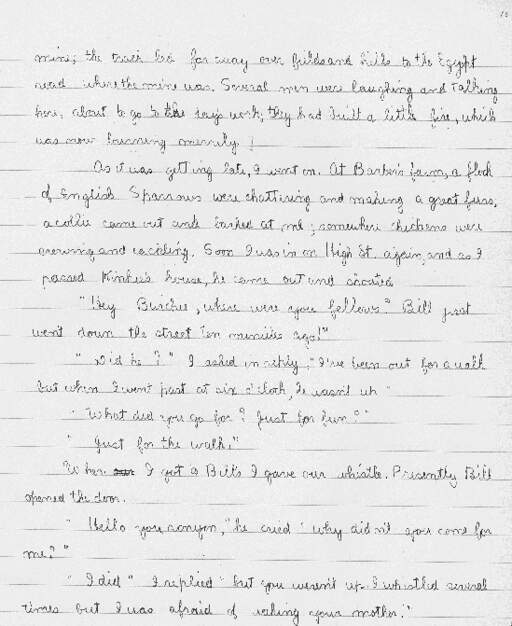 mine; the track led far away over fields and hills to the Egypt
road where the mine was. Several men were laughing and talking
here, about to go to the day's work; they had built a little fire, which
was now burning merrily!
As it was getting late, I went on. At Barber's farm, a flock
of English Sparrows were chattering and making a great fuss,
a collie came out and barked at me; somewhere chickens were
crowing and cackling. Soon I was in on High St. again, and as I
passed house, he came out and shouted
"Hey , where were you fellows?" Bill just
went down the street ten minutes ago!"
"Did he?" I asked in reply, "I've been out for a walk
but when I went past at six o'clock, he wasn't up"
"What did you go for? Just for fun?"
"Just for the walk."
When I got a Bill's I gave our whistle. Presently Bill
opened the door.
"Hello you , "he cried "why didn't you come for
me?"
"I did" I replied "but you weren't up. I whistled several
times but I was afraid of waking your mother."